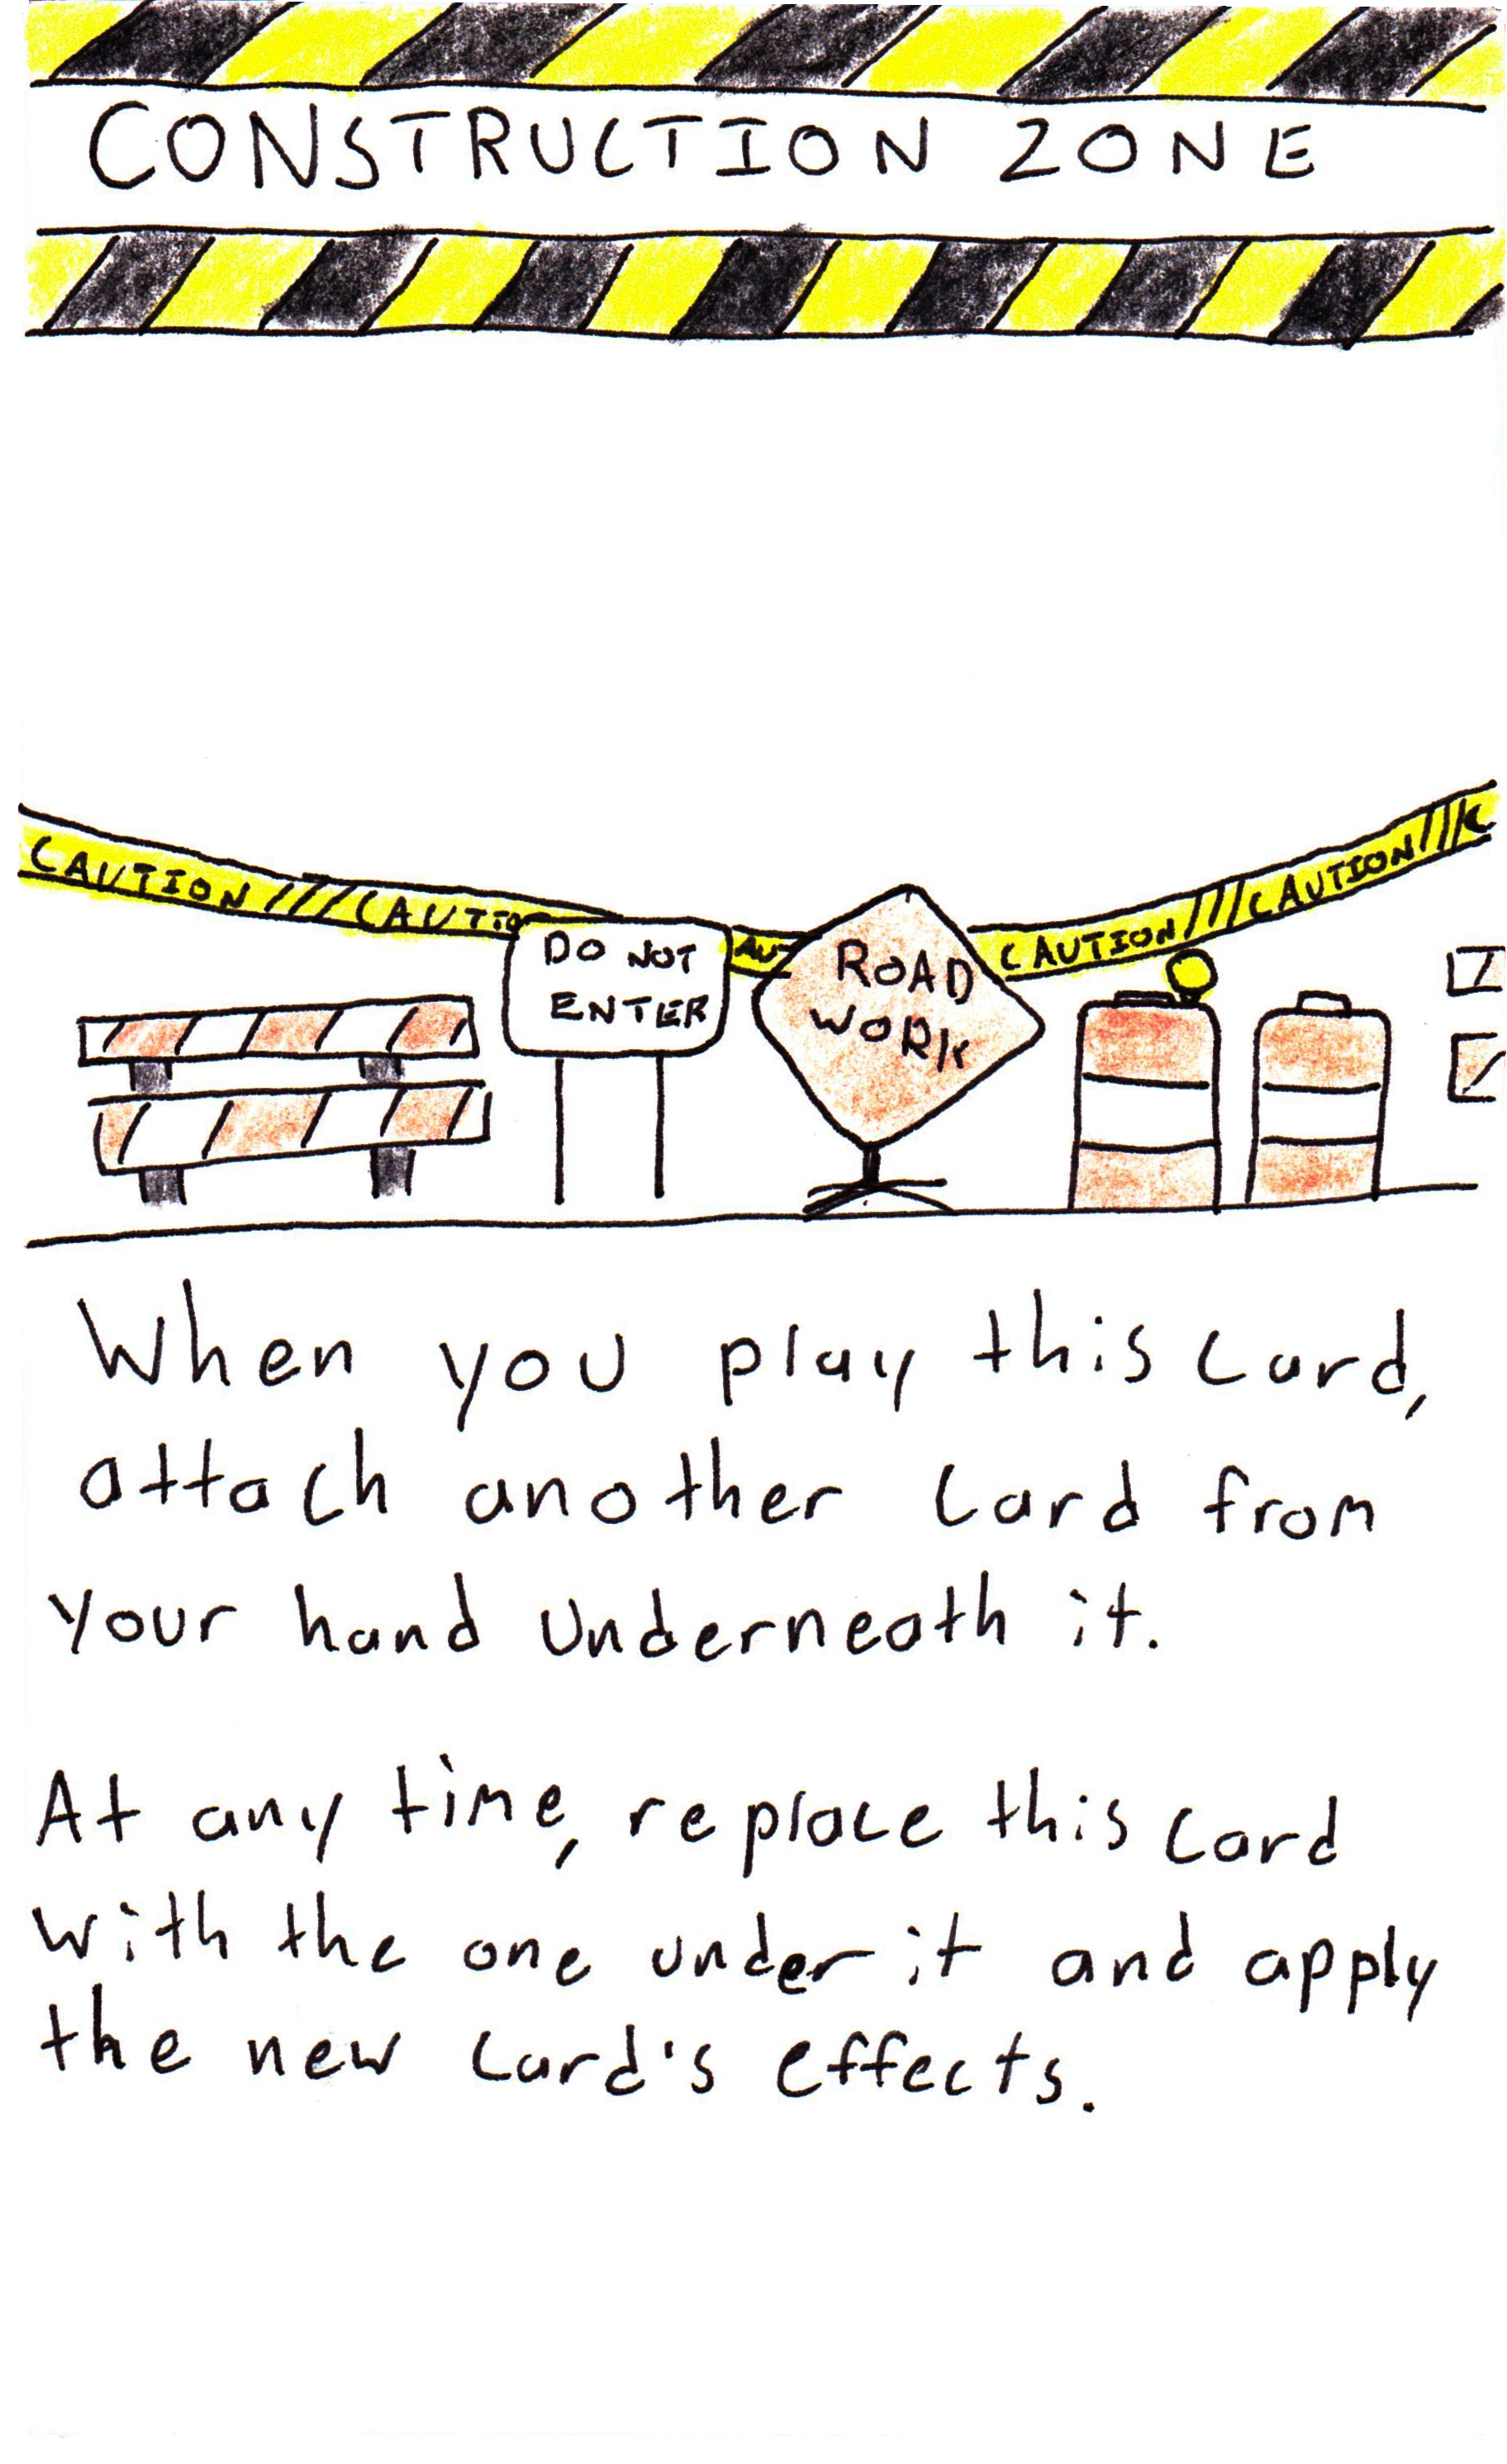 CONSTRUCTION ZONE
CAUTION /// CAUTIO
AU
CAUTION///CAUTION///C
DO NOT
ENTER
ROAD
WORK
When you play this card,
attach another card from
your hand underneath it.
At any time, replace this card
with the one under it and apply
the new card's effects.